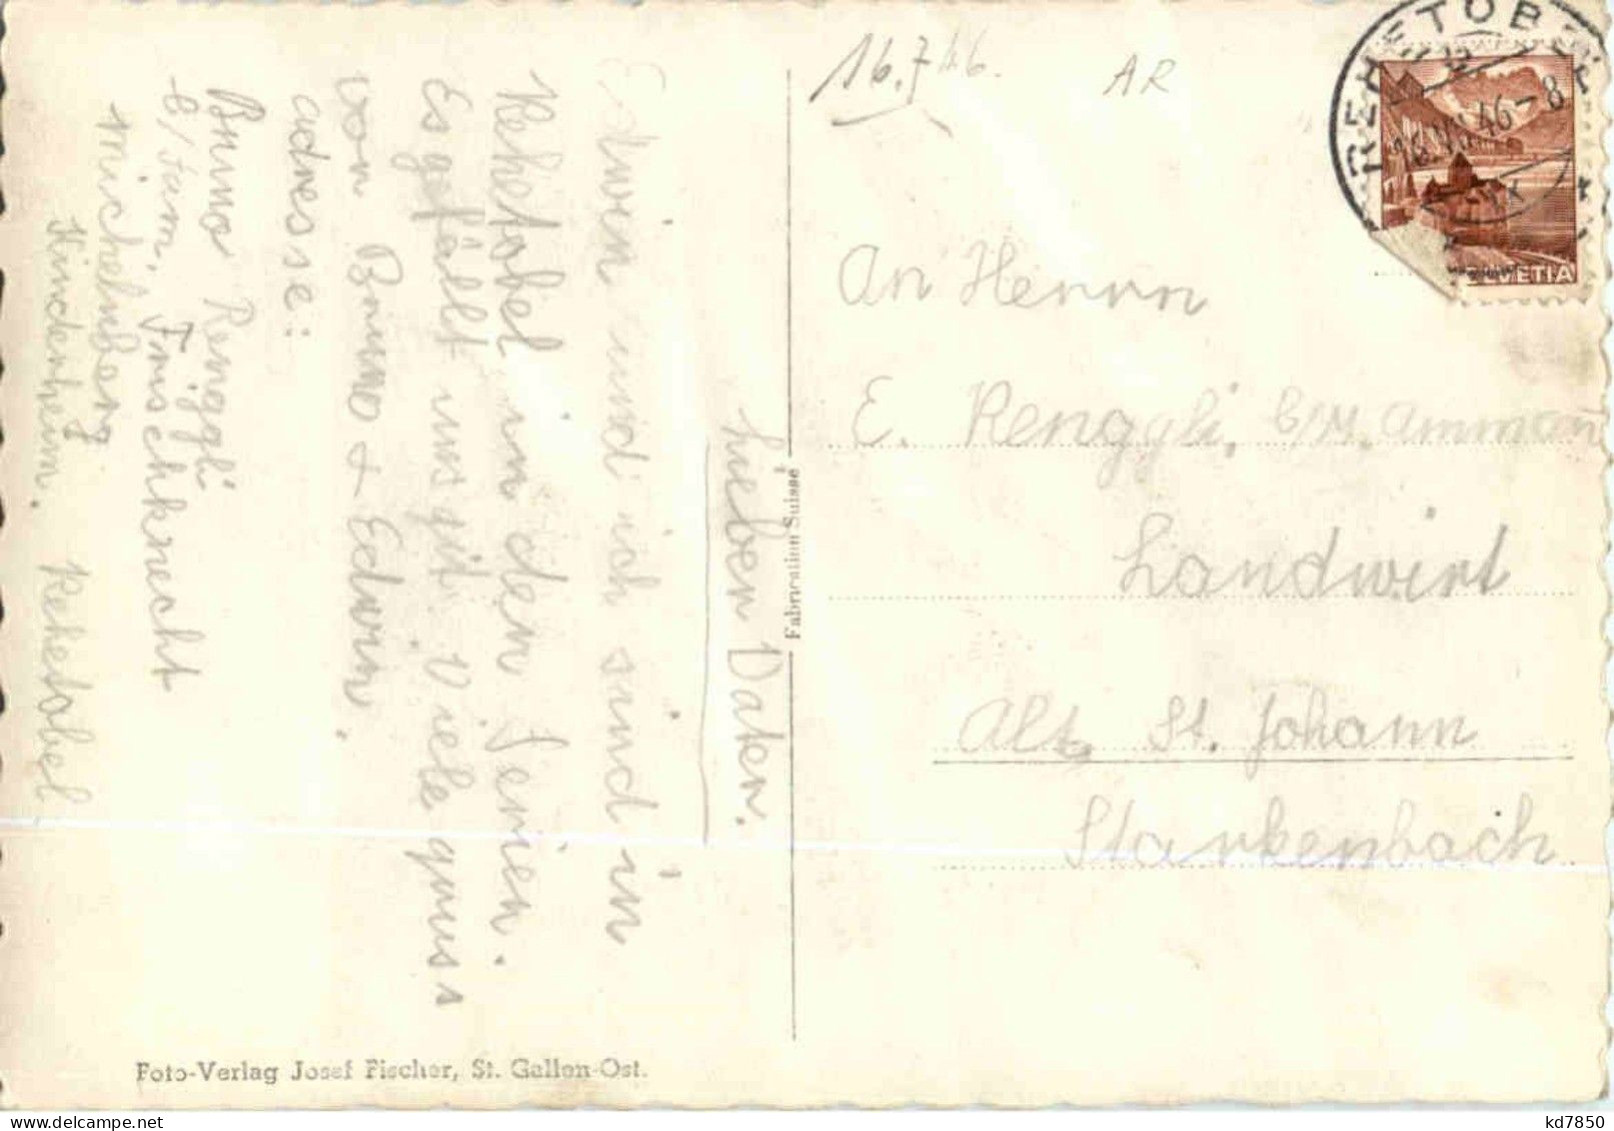 16.7.46.
AR
REHETOBEL
16.VII.46-8
HELVETIA
An Herrn
E. Renggli, b/M. Ammann
Landwirt
Alt St. Johann
Starkenbach
Fabrication Suisse
Lieber Vater.
Edwin und ich sind in
Rehetobel in den Ferien.
Es gefällt uns gut. Viele gruss
von Bruno + Edwin.
adresse:
Bruno Renggli
b/Fam. Frischknecht
Michelnberg
Kinderheim. Rehetobel
Foto-Verlag Josef Fischer, St. Gallen-Ost.
kd7850